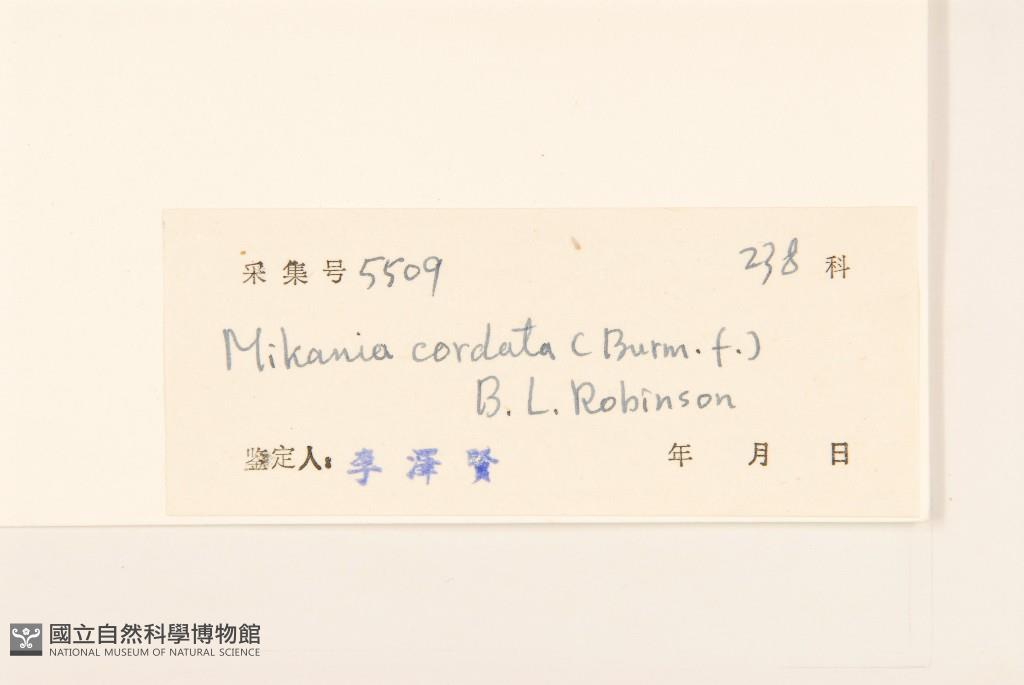 采集号 5509 238 科
Mikania cordata (Burm. f.)
B. L. Robinson
鉴定人: 李澤賢 年 月 日
國立自然科學博物館
NATIONAL MUSEUM OF NATURAL SCIENCE